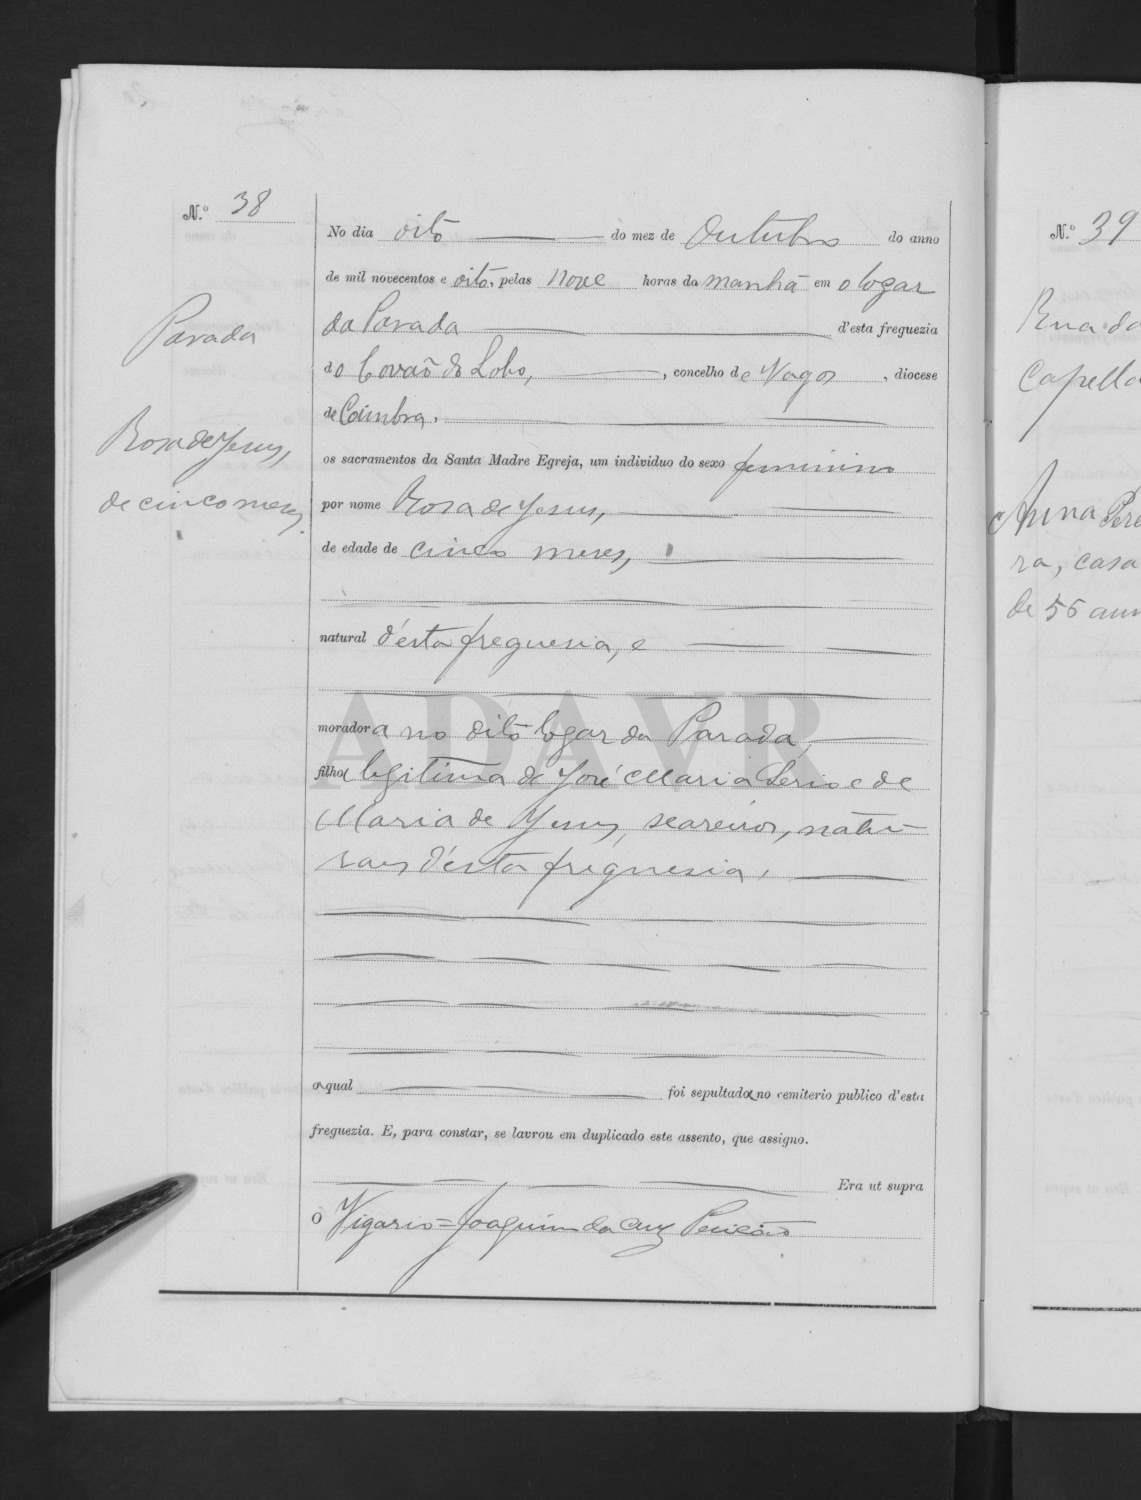 N.º 38
Parada
Rosa de Jesus,
de cinco mezes.
No dia oito do mez de Outubro do anno
de mil novecentos e oito, pelas nove horas da manhã em o logar
da Parada d'esta freguezia
do Covaõ do Lobo, , concelho de Vagos , diocese
de Coimbra.
os sacramentos da Santa Madre Egreja, um individuo do sexo feminino
por nome Rosa de Jesus,
de edade de cinco mezes,
natural d'esta freguesia, e
moradora no dito logar da Parada,
filha legitima de José Maria e de
Maria de Jesus, seareiros, natu-
raes d'esta freguesia.
a qual foi sepultada no cemiterio publico d'esta
freguezia. E, para constar, se lavrou em duplicado este assento, que assigno.
Era ut supra
O Vigario = Joaquim da Cruz
ADAVR
N.º 39
Rua da
Capella
Anna Perei
ra, casa
de 56 ann